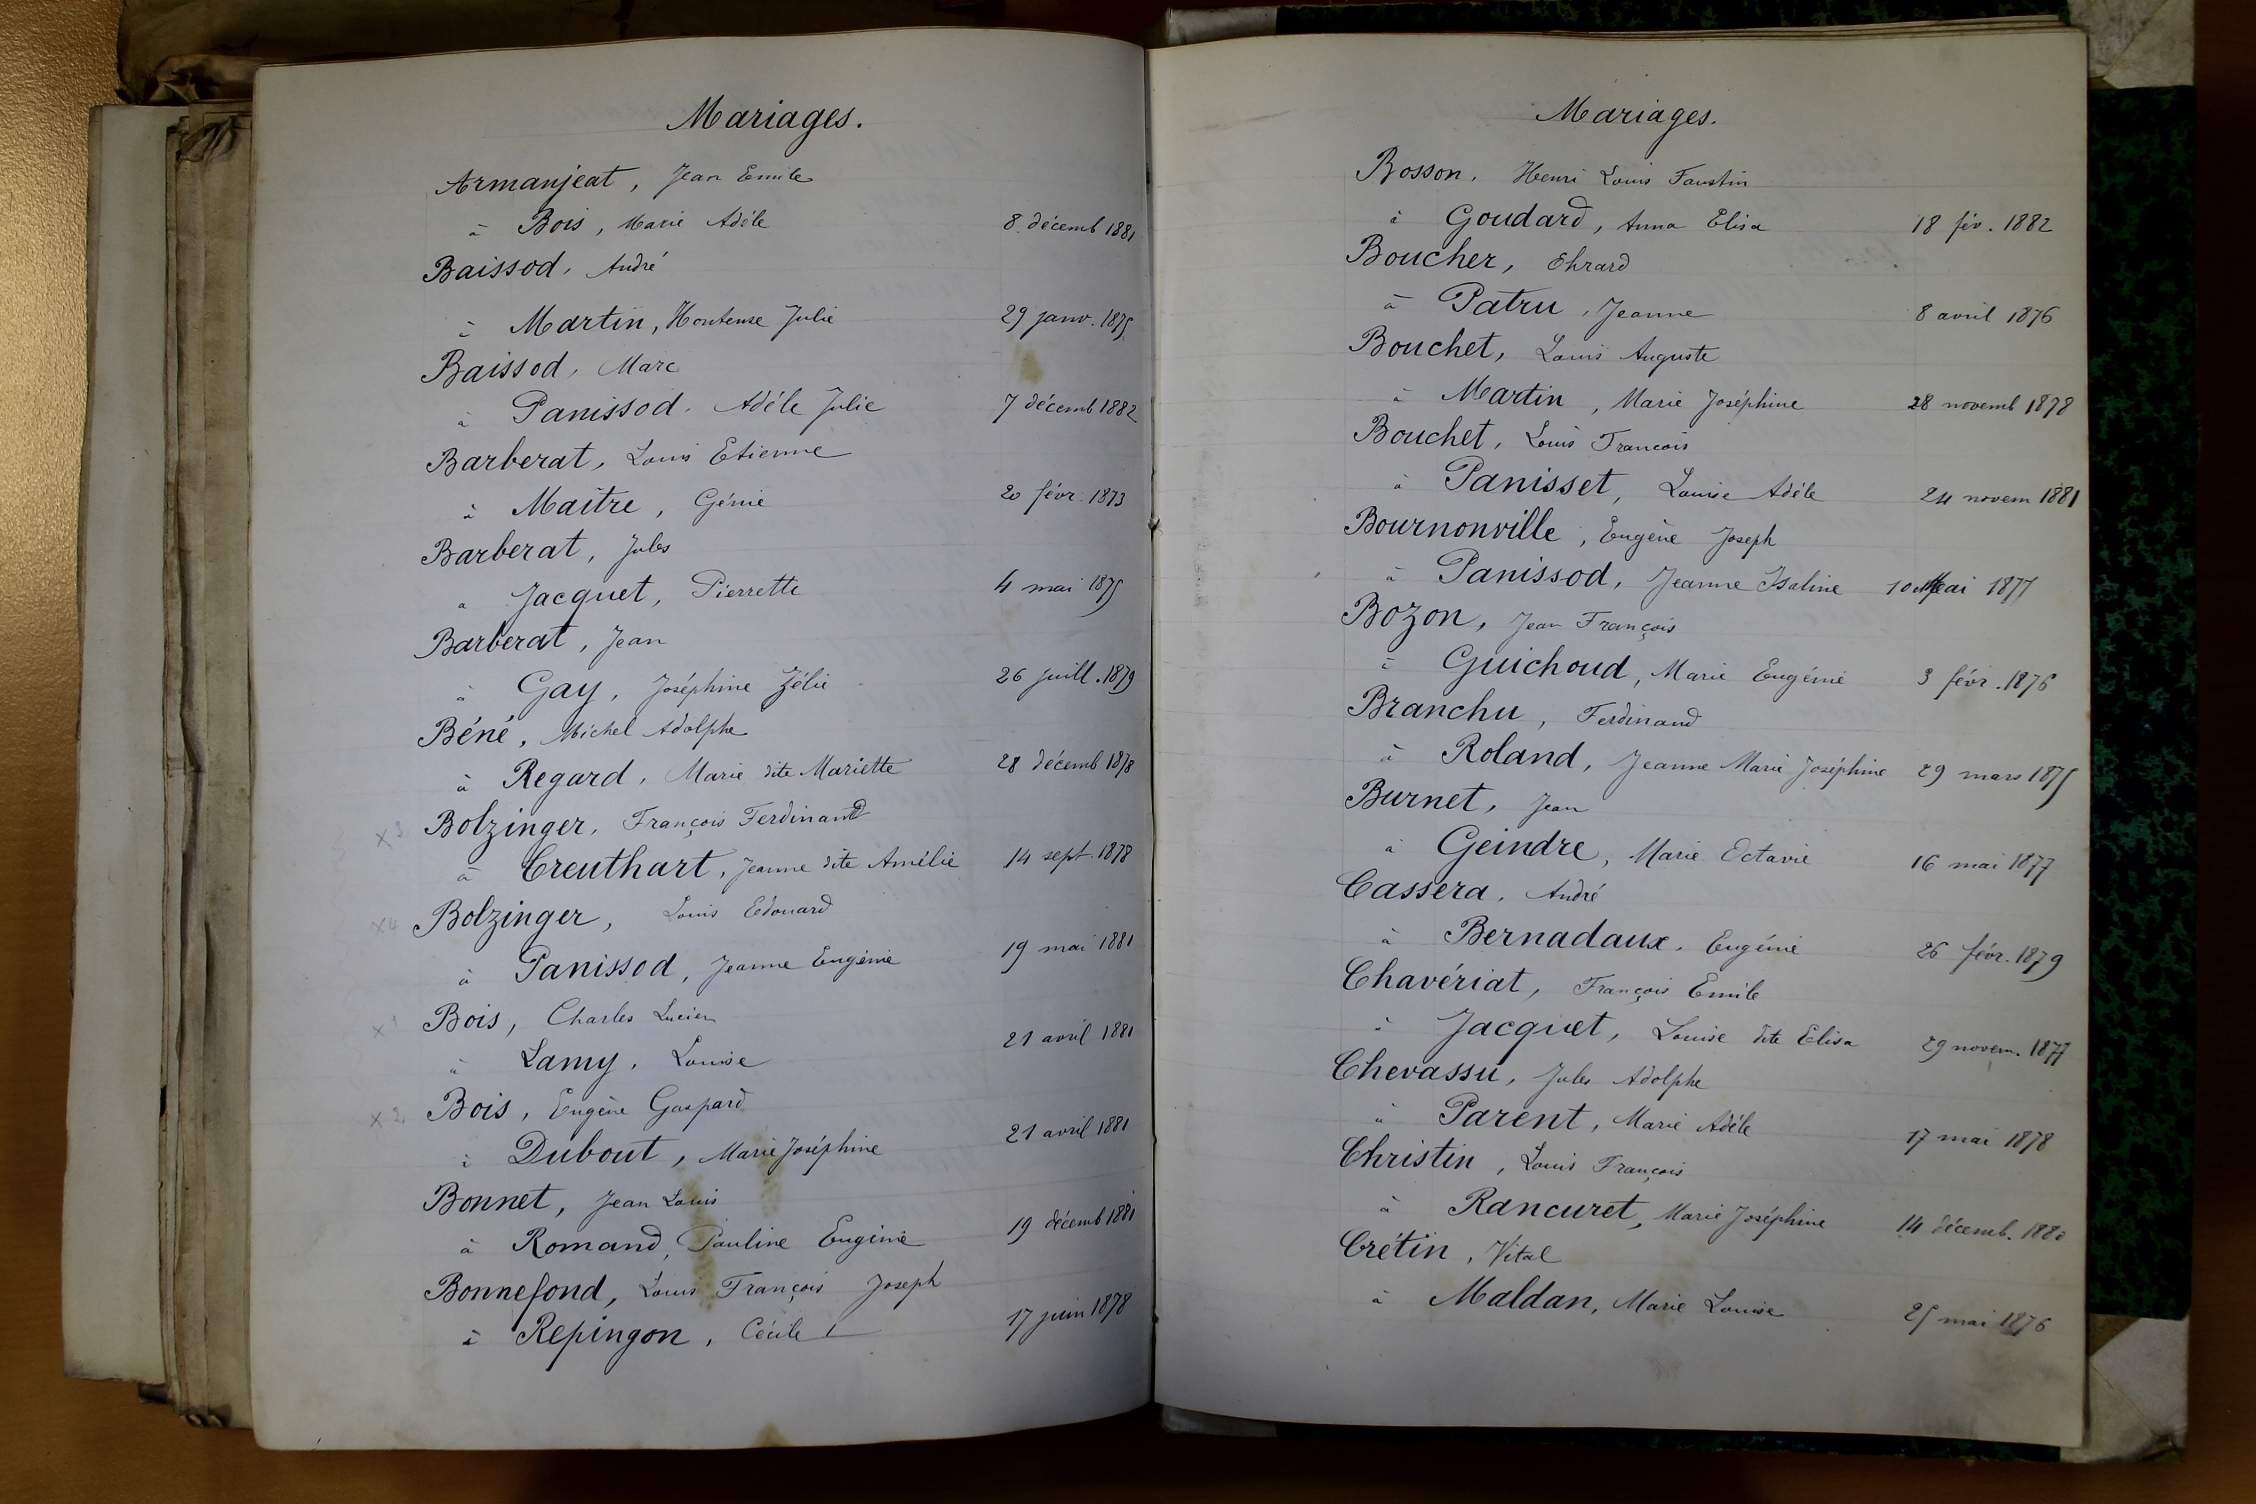 Mariages.
Armanjeat, Jean Emile
à Bois, Marie Adèle 8 décemb 1881
Baissod, André
à Martin, Hortense Julie 29 janv. 1875
Baissod, Marc
à Panissod, Adèle Julie 7 décemb 1882
Barberat, Louis Etienne
à Maitre, Génie 20 févr. 1873
Barberat, Jules
à Jacquet, Pierrette 4 mai 1875
Barberat, Jean
à Gay, Joséphine Zélie 26 juill. 1879
Béné, Michel Adolphe
à Regard, Marie dite Mariette 28 décemb 1878
x 3 Bolzinger, François Ferdinand
à Creuthart, Jeanne dite Amélie 14 sept. 1878
x 4 Bolzinger, Louis Edouard
à Panissod, Jeanne Eugénie 19 mai 1881
x 1 Bois, Charles Lucien
à Lamy, Louise 21 avril 1881
x 2 Bois, Eugène Gaspard
à Dubout, Marie Joséphine 21 avril 1881
Bonnet, Jean Louis
à Romand, Pauline Eugénie 19 décemb 1881
Bonnefond, Louis François Joseph
à Repingon, Cécile 17 juin 1878
Mariages.
Bosson, Henri Louis Faustin
à Goudard, Anna Elisa 18 fév. 1882
Boucher, Ehrard
à Patru, Jeanne 8 avril 1876
Bouchet, Louis Auguste
à Martin, Marie Joséphine 28 novemb 1878
Bouchet, Louis François
à Panisset, Louise Adèle 24 novem 1881
Bournonville, Eugène Joseph
à Panissod, Jeanne Isaline 10 Mai 1877
Bozon, Jean François
à Guichoud, Marie Eugénie 3 févr. 1876
Branchu, Ferdinand
à Roland, Jeanne Marie Joséphine 29 mars 1875
Burnet, Jean
à Geindre, Marie Octavie 16 mai 1877
Cassera, André
à Bernadaux, Eugénie 26 févr. 1879
Chavériat, François Emile
à Jacquet, Louise dite Elisa 29 novem. 1877
Chevassu, Jules Adolphe
à Parent, Marie Adèle 17 mai 1878
Christin, Louis François
à Rancuret, Marie Joséphine 14 décemb. 1880
Crétin, Vital
à Maldan, Marie Louise 25 mai 1876